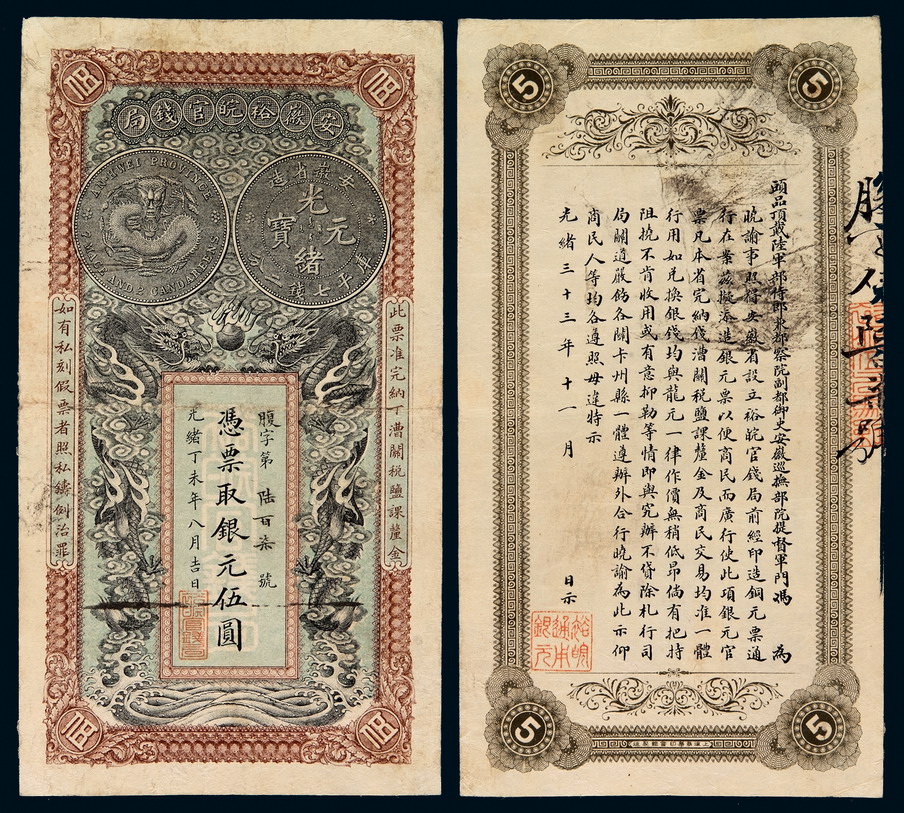 伍
伍
安徽裕皖官錢局
AN-HWEI PROVINCE
7 MACE AND 2 CANDAREENS
安徽省造
光緒元寶
庫平七錢二分
此票准完納丁漕關税鹽課釐金
腹字第陸百柒號
憑票取銀元伍圓
光緒丁未年八月吉日
如有私刻假票者照私鑄例治罪
伍
伍
5
5
頭品頂戴陸軍部侍郎兼都察院副都御史安徽巡撫部院提督軍門馮 為
曉諭事照得安徽省設立裕皖官錢局前經印造銅元票通
行在案茲擬添造銀元票以便商民而廣行使此項銀元官
票凡本省完納錢漕關税鹽課釐金及商民交易均准一體
行用如兑換銀錢均與龍元一律作價無稍低昂倘有把持
阻撓不肯收用或有意抑勒等情即與究辦不貸除札行司
局關道嚴飭各關卡州縣一體遵辦外合行曉諭為此示仰
商民人等均各遵照毋違特示
光緒三十三年十一月 日示
裕皖通用銀元
5
5